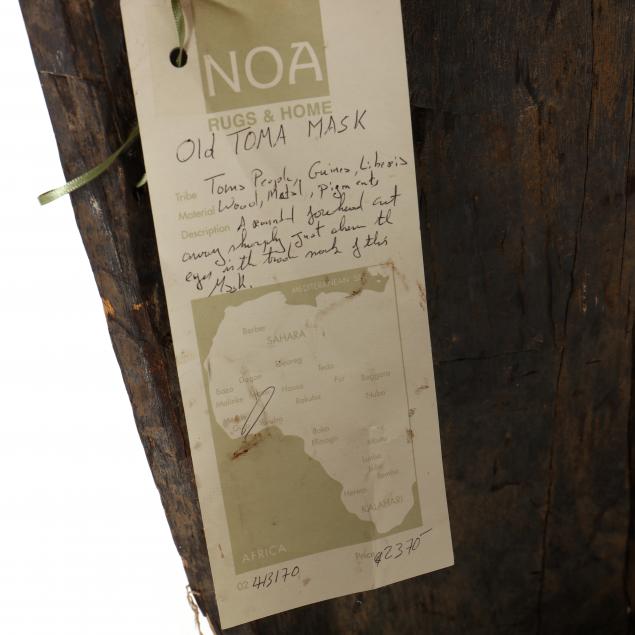 NOA
RUGS & HOME
Old TOMA MASK
Tribe Toma People, Guinea, Liberia
Material Wood, Metal, Pigment,
Description A rounded forehead cut
away sharply just above the
eyes is the trade mark of this
Mask.
MEDITERRANEAN
Berber
SAHARA
Tuareg
Dogon
Teda
Bozo
Hausa
Fur
Baggara
Malinke
Bakuba
Nuba
Boko
Herero
KALAHARI
AFRICA
Price $2370-
02 413170